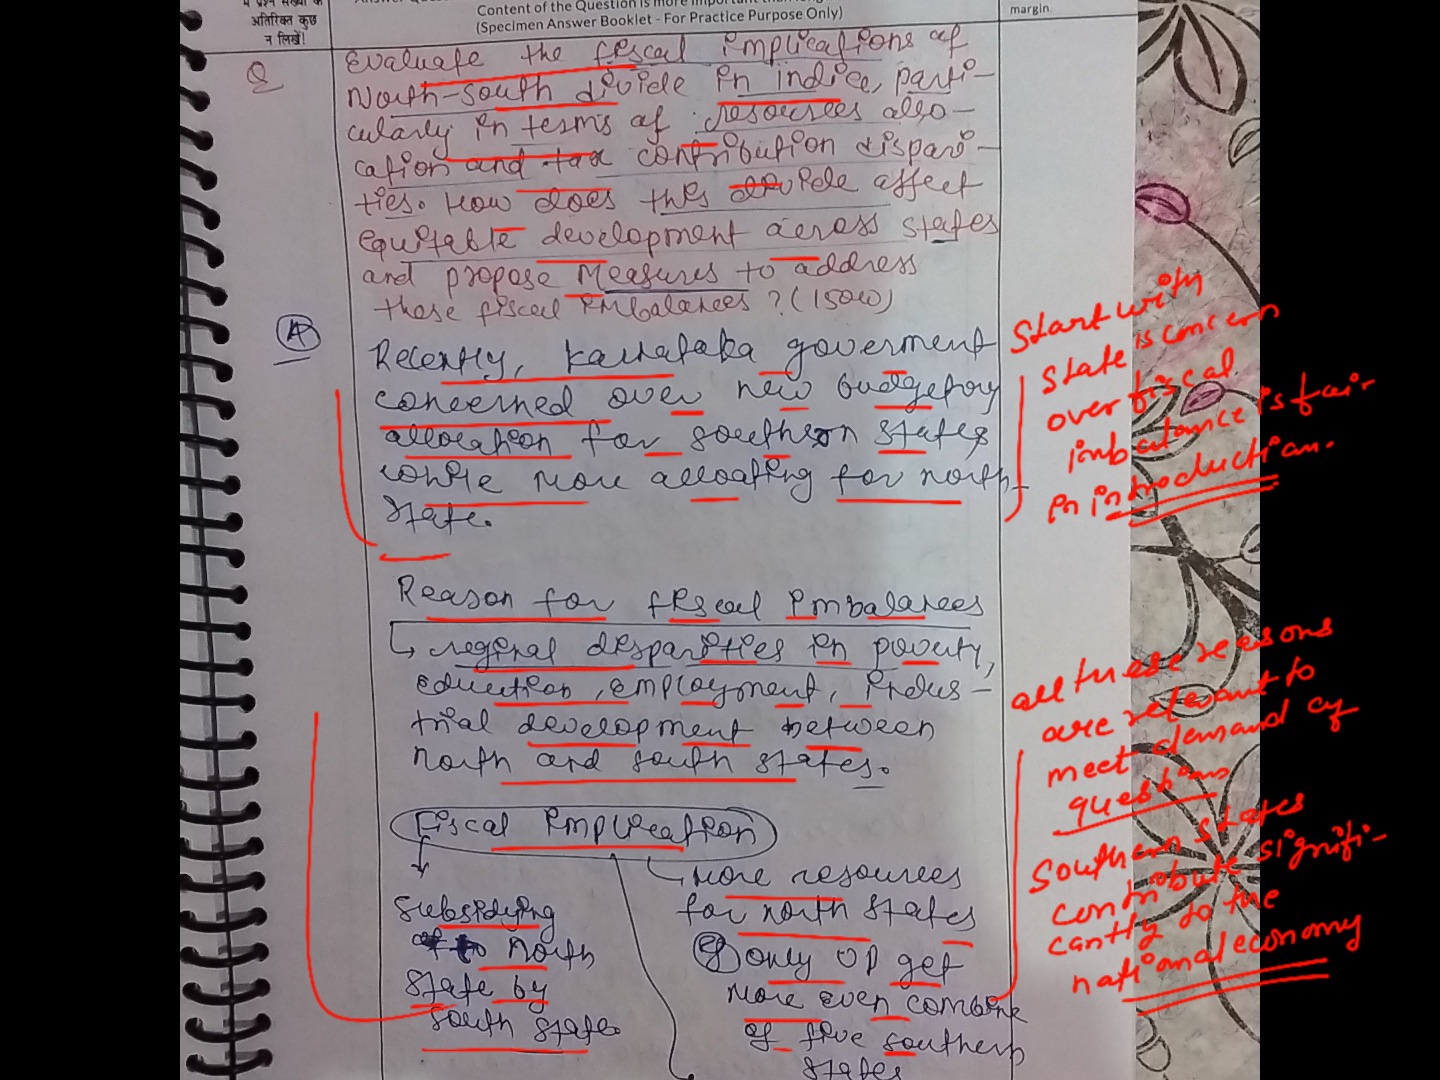 अतिरिक्त कुछ
न लिखें!
Content of the Question is more important than
(Specimen Answer Booklet - For Practice Purpose Only)
margin.
Q
Evaluate the fiscal implications of
North-south divide in indice, parti-
cularly in terms of resources allo-
cation and tax contribution dispari-
ties. How does this divide affect
equitable development across states
and propose measures to address
these fiscal imbalances ? (150W)
A
Recently, Karnataka goverment
concerned over new budgetory
allocation for southern states
while more allocating for north-
state.
Reason for fiscal imbalances
↳ reginal disparities in poverty,
education, employment, indus-
trial development between
north and south states.
Fiscal implication
Subsidying
of to North
state by
south state.
↳ More resources
for north states
eg) only UP get
more even combine
of five southern
states
Start with
state is concern
over fiscal
imbalance is fair
in introduction.
all these reasons
are relevant to
meet demand of
questions
Southern states
contribute signifi-
cantly to the
national economy